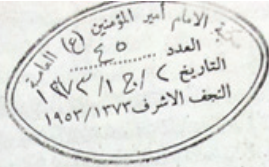 مكتبة الامام أمير المؤمنين (ع) العامة
العدد ٤٥
التاريخ ٢ / ج ١ / ١٣٧٣
النجف الاشرف ١٩٥٣/١٣٧٣